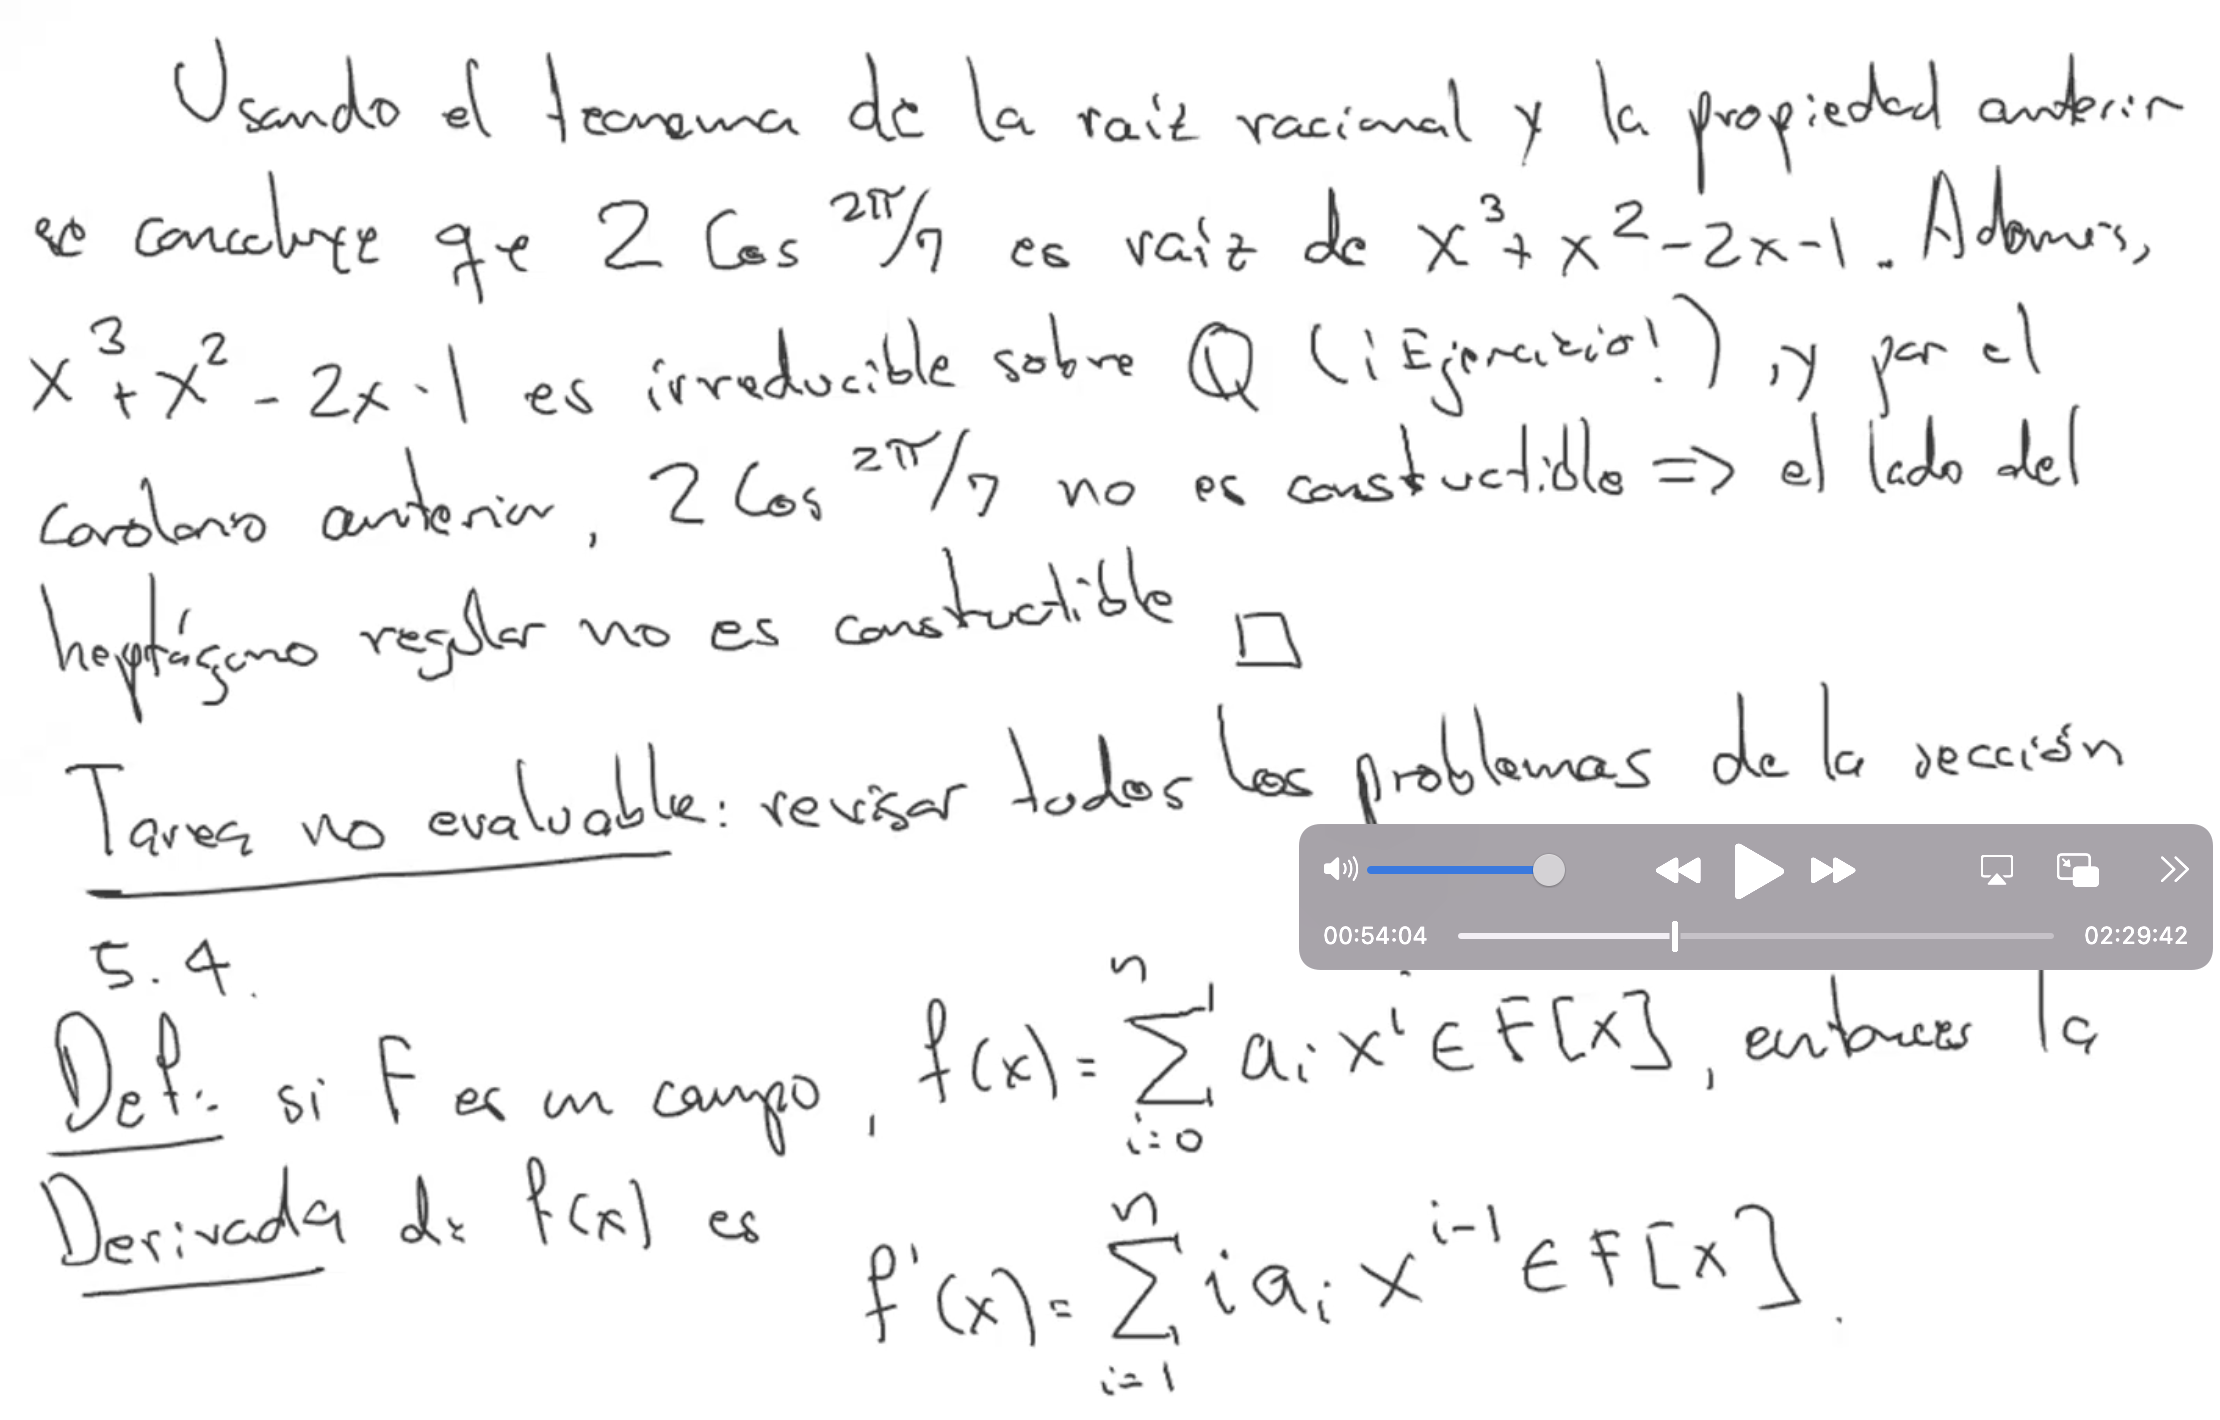 Usando el teorema de la raíz racional y la propiedad anterior
se concluye que 2 Cos 2π/7 es raíz de x³+x²-2x-1. Además,
x³+x²-2x-1 es irreducible sobre Q (¡Ejercicio!), y por el
corolario anterior, 2 Cos 2π/7 no es constructible => el lado del
heptágono regular no es constructible □
Tarea no evaluable: revisar todos los problemas de la sección
00:54:04 02:29:42
5.4.
Def: si F es un campo, f(x) = ∑_{i=0}^{n} aᵢ xⁱ ∈ F[x], entonces la
Derivada de f(x) es
f'(x) = ∑_{i=1}^{n} i aᵢ x^{i-1} ∈ F[x].